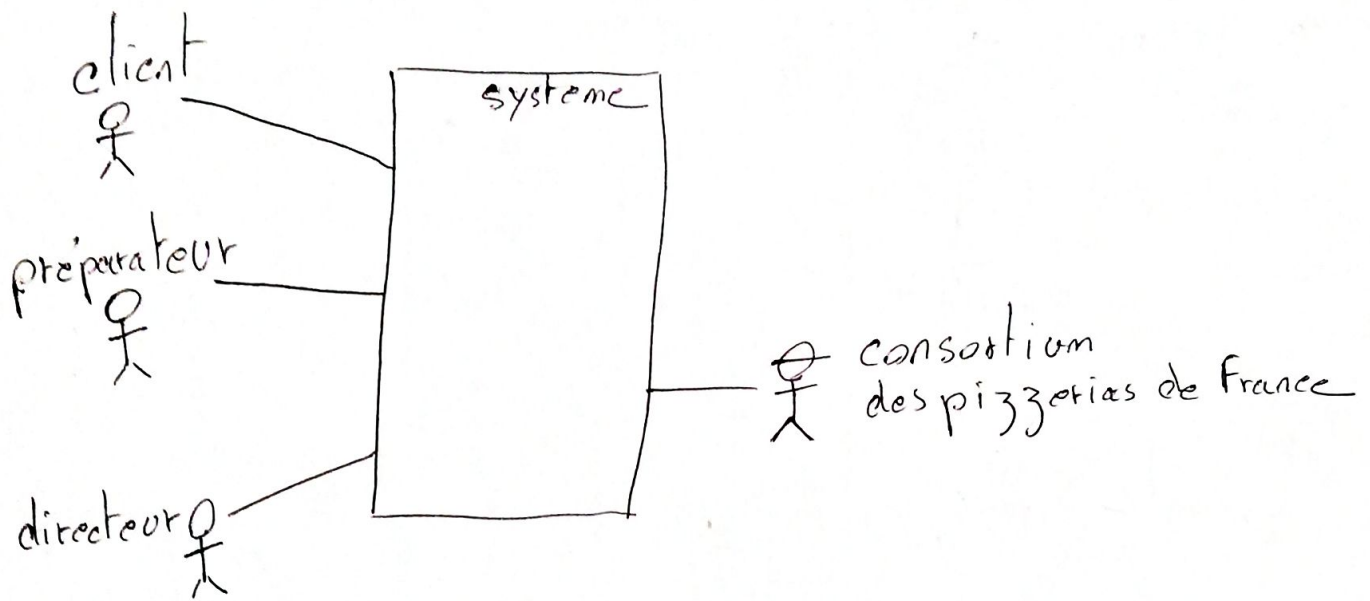 client
système
préparateur
consortium
des pizzerias de France
directeur